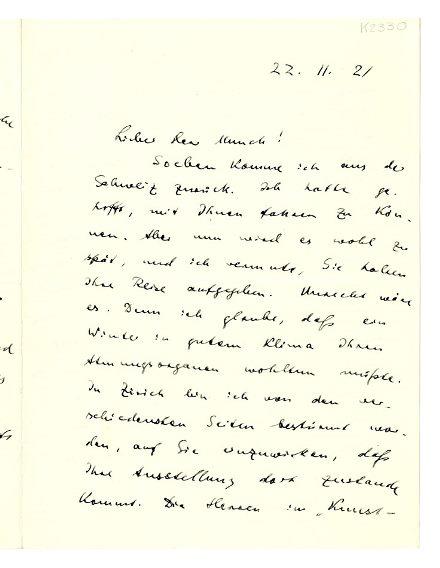 K2330
22. 11. 21
Lieber Herr Munch!
Soeben komme ich aus der
Schweiz zurück. Ich hatte ge-
hofft, mit Ihnen fahren zu kön-
nen. Aber nun wird es wohl zu
spät, und ich vermute, Sie haben
Ihre Reise aufgegeben. Unrecht wäre
es. Denn ich glaube, daß ein
Winter in gutem Klima Ihren
Atmungsorganen wohltun müßte.
In Zürich bin ich von den ver-
schiedensten Seiten bestürmt wor-
den, auf Sie einzuwirken, daß
Ihre Ausstellung dort zustande
kommt. Die Herren im „Kunst-